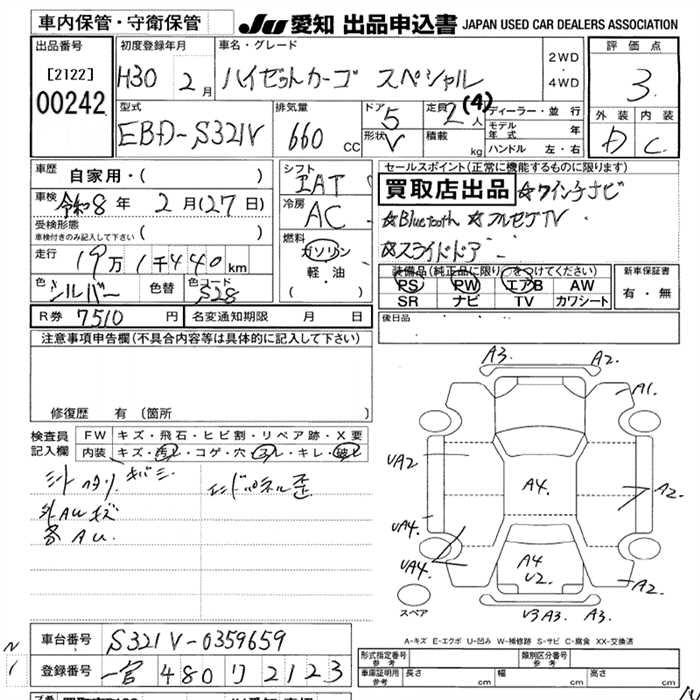 車内保管・守衛保管
JU 愛知 出品申込書 JAPAN USED CAR DEALERS ASSOCIATION
出品番号
[2122]
00242
初度登録年月
H30 2月
車名・グレード
ハイゼットカーゴ スペシャル
2WD
・
4WD
評価点
3
外装 内装
D C
型式
EBD-S321V
排気量
660 cc
ドア
5
形状
V
定員
2(4)人
積載
kg
ディーラー・並行
モデル年式 年
ハンドル 左・右
車歴
自家用・( )
車検
令和8年 2月(27日)
受検形態
車検付きのみ記入して下さい ( )
走行
19万1千440km
色
シルバー
色替
色コード
S28
シフト
IAT
冷房
AC
燃料
ガソリン
軽・油
( )
セールスポイント(正常に機能するものに限ります)
買取店出品 ☆ワイン千ナビ
☆Bluetooth ☆フルセグTV
☆スライドドアー
装備品(純正品に限り○をつけてください)
PS PW エアB AW
SR ナビ TV カワシート
新車保証書
有・無
R券 7510円 名変通知期限 月 日
後日品
注意事項申告欄(不具合内容等は具体的に記入して下さい)
修復歴 有(箇所 )
検査員記入欄
FW キズ・飛石・ヒビ割・リペア跡・X要
内装 キズ・汚れ・コゲ・穴・スレ・キレ・破れ
エンドパネル歪
外AUキズ
各AU.
A3. A2.
A1.
UA2
A4.
A2.
UA4.
UA4.
A4
U2.
A2.
U3 A3. A3.
スペア
A-キズ E-エクボ U-凹み W-補修跡 S-サビ C-腐食 XX-交換済
車台番号 S321V-0359659
登録番号 一宮 480 リ 2123
形式指定番号
参考
類別区分番号
参考
車庫証明用
参考
長さ cm 幅 cm 高さ cm